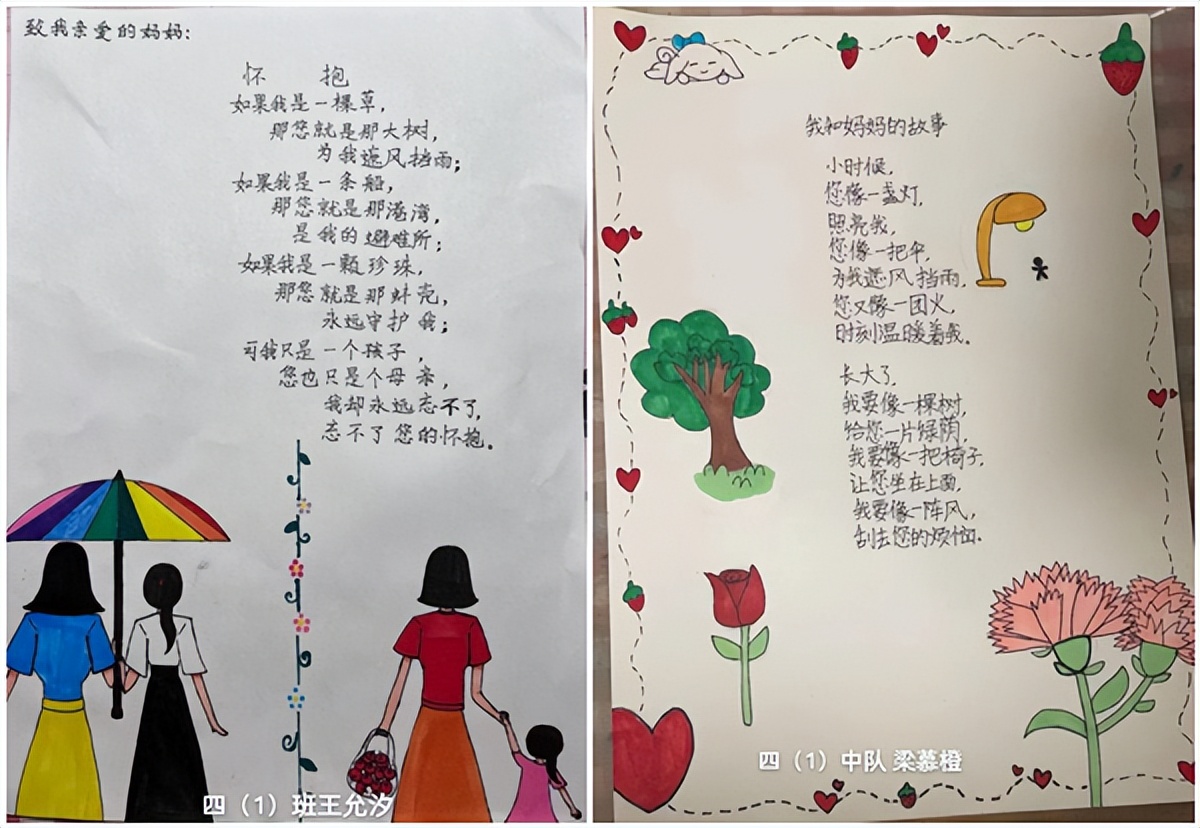 致我亲爱的妈妈:
怀 抱
如果我是一棵草,
那您就是那大树,
为我遮风挡雨;
如果我是一条船,
那您就是那港湾,
是我的避难所;
如果我是一颗珍珠,
那您就是那蚌壳,
永远守护我;
可我只是一个孩子,
您也只是个母亲,
我却永远忘不了,
忘不了您的怀抱。
四（1）班王允汐
我和妈妈的故事
小时候,
您像一盏灯,
照亮我,
您像一把伞,
为我遮风挡雨,
您又像一团火,
时刻温暖着我。
长大了,
我要像一棵树,
给您一片绿荫,
我要像一把椅子,
让您坐在上面,
我要像一阵风,
刮去您的烦恼。
四（1）中队 梁慕橙